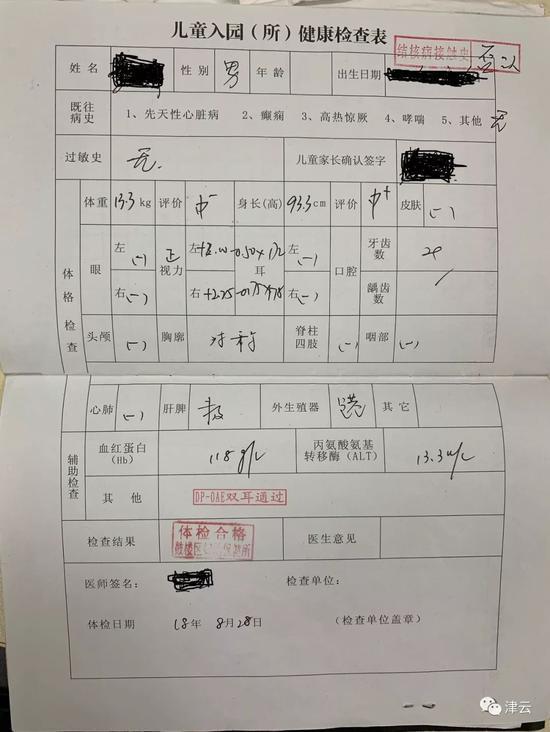 儿童入园（所）健康检查表
结核病接触史 否认
姓名 性别 男 年龄 出生日期
既往病史 1、先天性心脏病 2、癫痫 3、高热惊厥 4、哮喘 5、其他 无
过敏史 无. 儿童家长确认签字
体格检查
体重 13.3 kg 评价 中- 身长(高) 93.3 cm 评价 中+ 皮肤 (-)
眼 左 (-) 视力 左 耳 左 (-) 口腔 牙齿数
右 (-) 右 +2.25 右 (-) 龋齿数 /
头颅 (-) 胸廓 对称 脊柱四肢 (-) 咽部 (-)
心肺 (-) 肝脾 外生殖器 其它
辅助检查
血红蛋白（Hb） 118 g/L 丙氨酸氨基转移酶（ALT） 13.3 u/L
其他 DP-OAE双耳通过
检查结果 体检合格 医生意见
鼓楼区
医师签名： 检查单位：
体检日期 18年 8月28日 （检查单位盖章）
津云